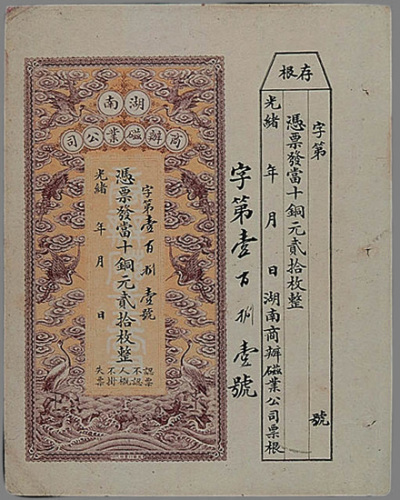 存根
字第 號
憑票發當十銅元貳拾枚整
光緒 年 月 日湖南商辦磁業公司票根
字第壹百捌壹號
湖南
商辦磁業公司
字第壹百捌壹號
憑票發當十銅元貳拾枚整
光緒 年 月 日
認票不認人概不掛失票